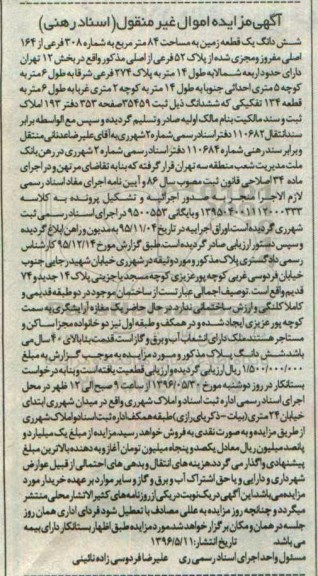 آگهی مزایده اموال غیر منقول (اسناد رهنی)
شش دانگ یک قطعه زمین به مساحت ۸۴ متر مربع به شماره ۳۰۸ فرعی از ۱۶۴
اصلی مفروز و مجزی شده از پلاک ۵۲ فرعی از اصلی مذکور واقع در بخش ۱۲ تهران
دارای حدود اربعه شمالا به طول ۱۴ متر به پلاک ۳۷۴ فرعی شرقا به طول ۶ متر به
کوچه ۵ متری احداثی جنوبا به طول ۱۴ متر به کوچه ۲ متری غربا به طول ۶ متر به
قطعه ۱۳۴ تفکیکی که ششدانگ ذیل ثبت ۲۵۴۵۹ صفحه ۳۵۳ دفتر ۱۹۳ املاک
ثبت و سند مالکیت بنام مالک اولیه صادر و تسلیم گردیده و سپس مع الواسطه برابر
سند انتقال ۱۱۰۶۸۲ دفتر اسناد رسمی شماره ۲ شهرری به آقای علیرضا عدنانی منتقل
و برابر سند رهنی شماره ۱۱۰۶۸۴ دفتر اسناد رسمی شماره ۲ شهرری در رهن بانک
ملت مدیریت شعب منطقه سه تهران قرار گرفته که بنا به تقاضای مرتهن و در اجرای
ماده ۳۴ اصلاحی قانون ثبت مصوب سال ۸۶ و آیین نامه اجرای مفاد اسناد رسمی
لازم الاجرا منجر به صدور اجرائیه و تشکیل پرونده به کلاسه
۱۳۹۵۰۴۰۰۱۱۱۲۰۰۰۳۳۳ و بایگانی ۹۵۰۰۵۵۳ در اجرای اسناد رسمی ثبت
شهرری گردیده است اوراق اجراییه در تاریخ ۹۵/۱۱/۰۴ به مدیون و راهن ابلاغ گردیده
و سپس دستور ارزیابی صادر گردیده است طبق گزارش مورخ ۹۵/۱۲/۱۴ کارشناس
رسمی دادگستری پلاک مذکور و مورد وثیقه در شهرری خیابان شهید رجایی جنوب
خیابان فردوسی غربی کوچه پورعزیزی کوچه مسجد یا جزینی پلاک ۱۴ جدید و ۷۴
قدیم واقع است. توصیف اجمالی عبارتست از ساختمان موجود در دو طبقه قدیمی و
کاملا کلنگی و ارزش ساختمانی ندارد در حال حاضر یک مغازه آرایشگری به سمت
کوچه پورعزیزی ایجاد شده و در همکف و طبقه اول نیز دو خانواده مجزا ساکن و
مستاجر هستند ملک دارای انشعاب آب و برق و گاز است قدمت بنا بالای ۴۰ سال می
باشد شش دانگ پلاک مذکور و مورد مزایده به موجب گزارش به مبلغ
۱/۵۰۰/۰۰۰/۰۰۰ ریال ارزیابی گردیده و ارزیابی قطعیت یافته است و بنا به درخواست
بستانکار در روز دوشنبه مورخ ۱۳۹۶/۰۵/۳۰ از ساعت ۹ صبح الی ۱۲ ظهر در محل
اجرای اسناد رسمی اداره ثبت اسناد و املاک شهرری واقع در میدان شهرری ابتدای
خیابان ۲۴ متری (بیات - ذکریای رازی) طبقه همکف اداره ثبت اسناد و املاک شهرری
از طریق مزایده و به صورت نقدی به فروش خواهد رسید مزایده از مبلغ یک میلیارد و
پانصد میلیون ریال معادل یکصد و پنجاه میلیون تومان آغاز و به دهنده بالاترین مبلغ
پیشنهادی واگذار می گردد هزینه های انتقال و بدهی های احتمالی از قبیل عوارض
شهرداری و دارایی و یا حق اشتراک آب و برق و گاز و سایر موارد بر عهده خریدار مورد
مزایده می باشد این آگهی در یک نوبت در یکی از روزنامه های کثیر الانتشار محلی منتشر
میگردد و چنانچه روز مزایده به عللی مصادف با تعطیل شود فردای اداری همان روز
جلسه در همان و مکان برگزار خواهد شد مورد مزایده طبق اظهار بستانکار دارای بیمه
می باشد. تاریخ انتشار: ۱۳۹۶/۵/۱۱
مسئول واحد اجرای اسناد رسمی ری علیرضا فردوسی زاده نائینی